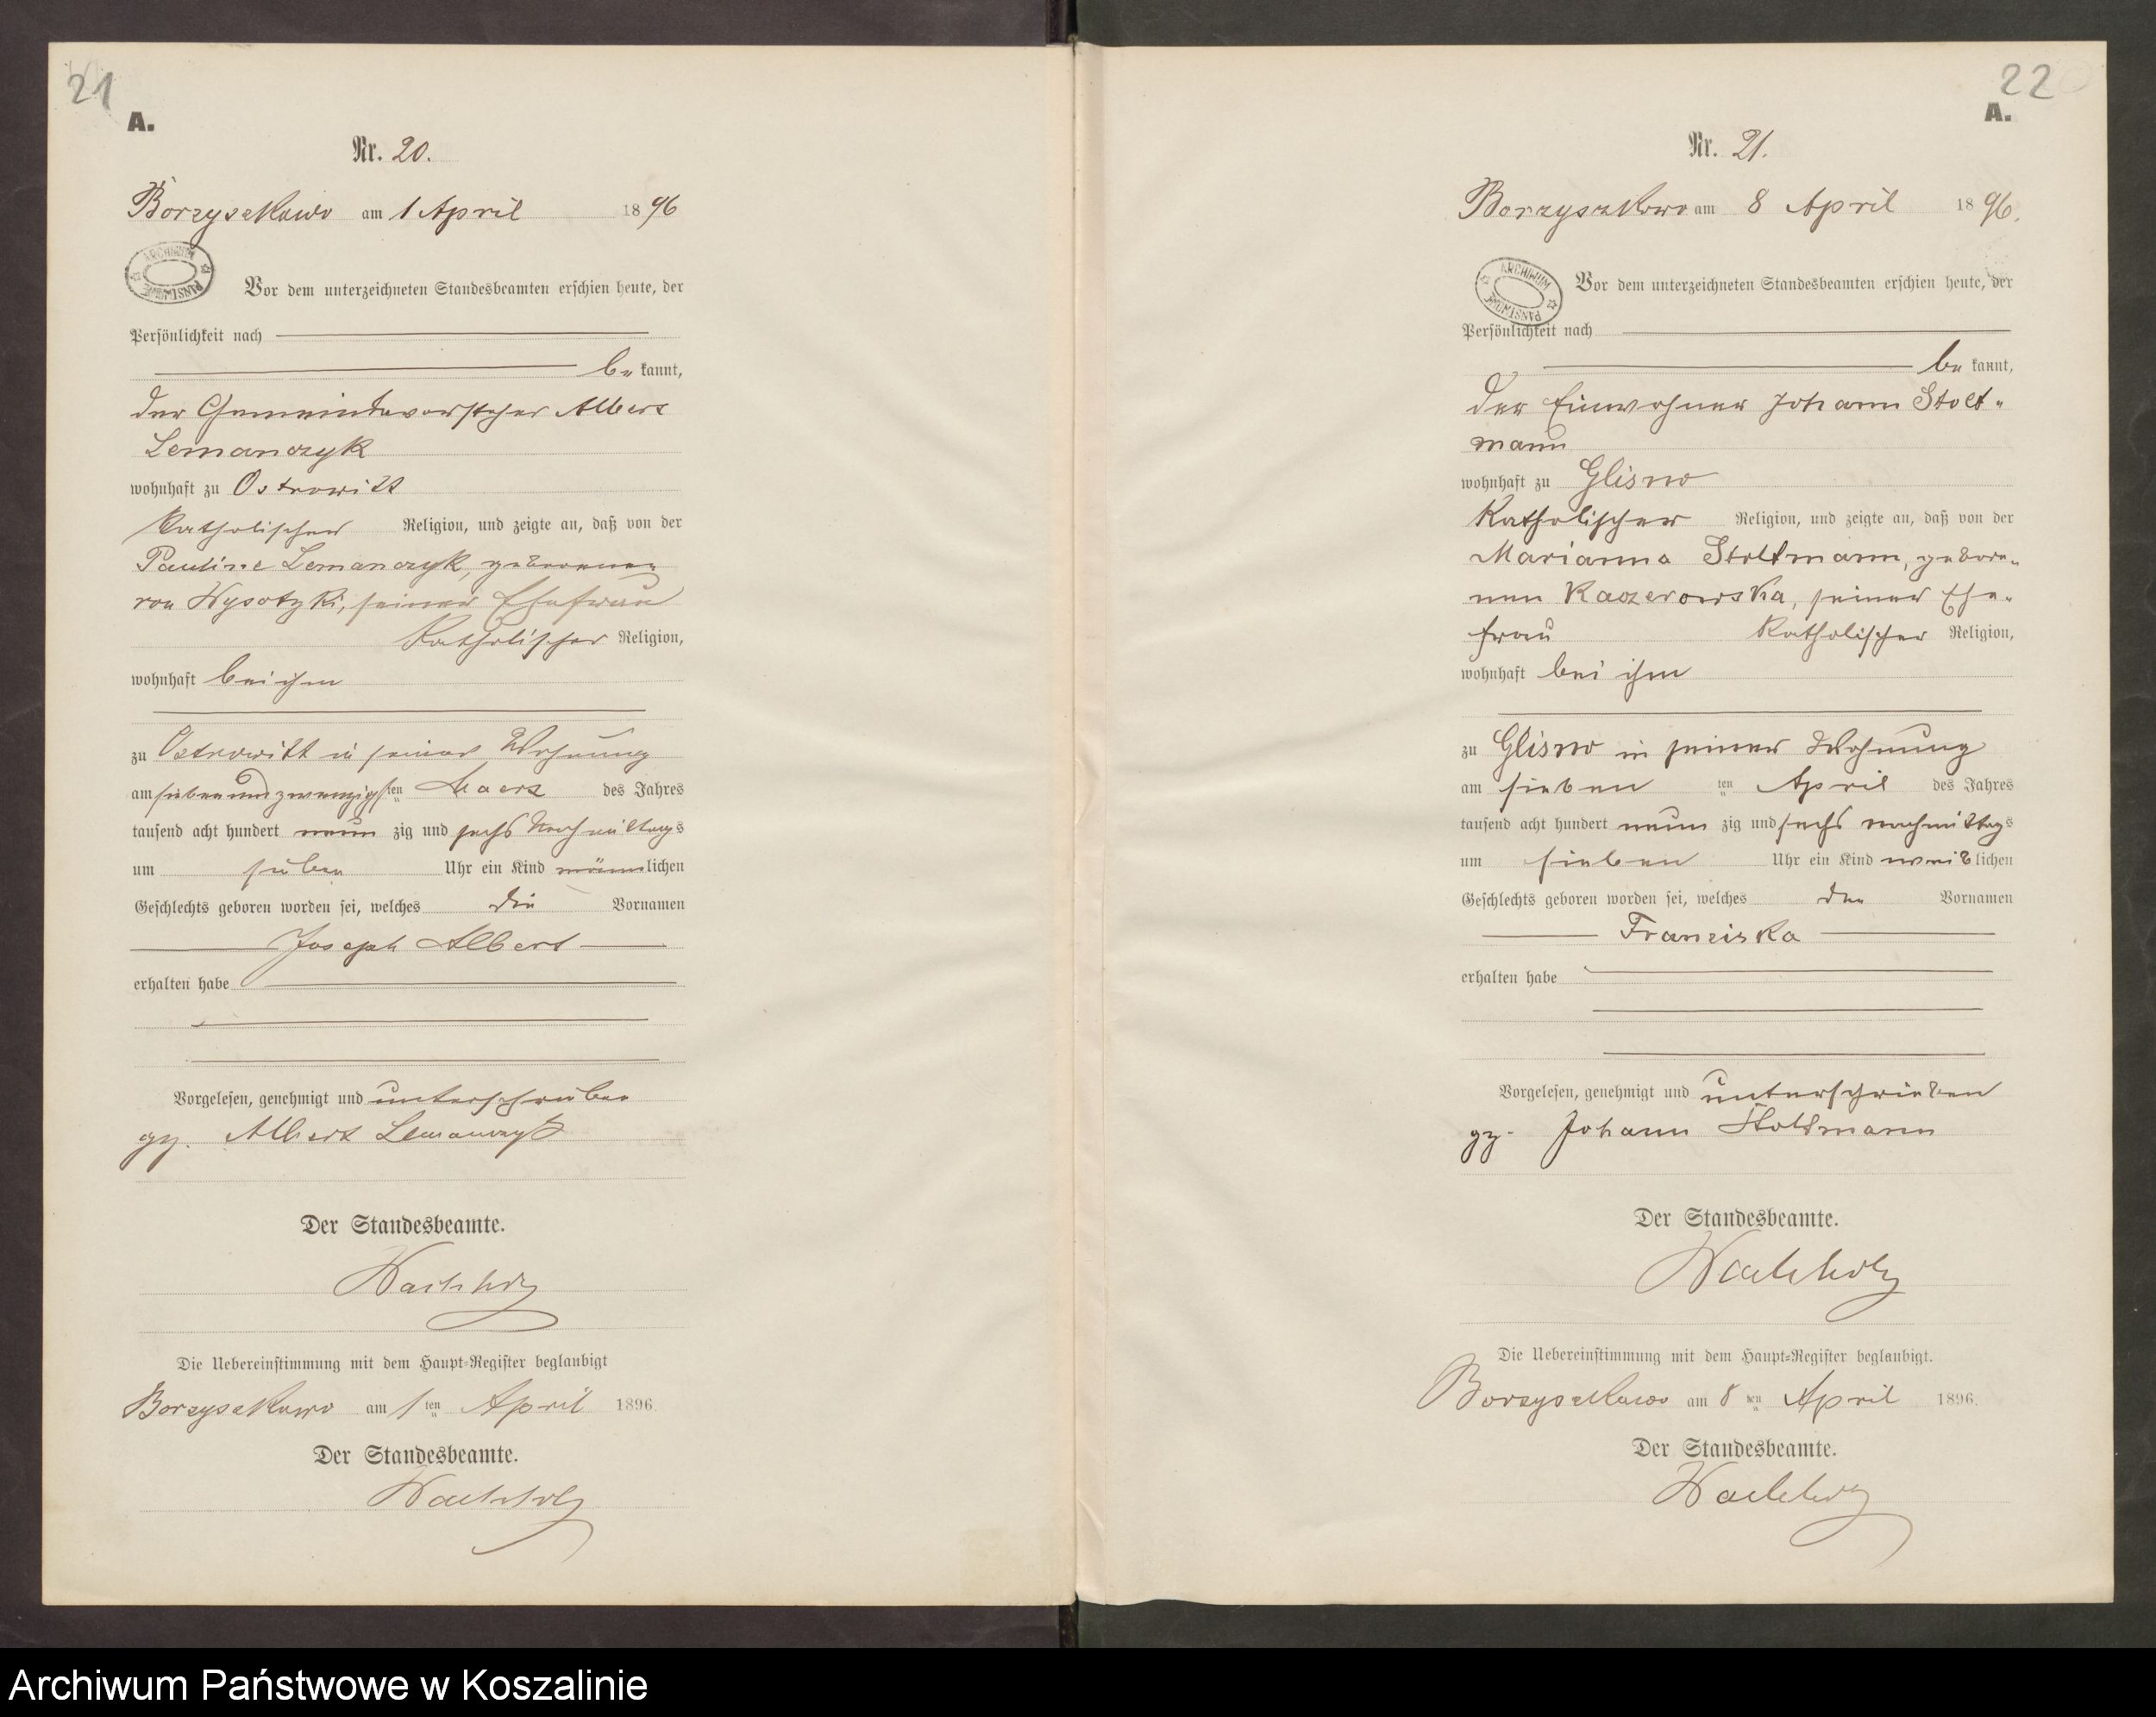 21
A.
Nr. 20.
Borzyszkowo am 1 April 1896
ARCHIWUM PAŃSTWOWE
Vor dem unterzeichneten Standesbeamten erschien heute, der
Persönlichkeit nach
be kannt,
der Gemeindevorsteher Albert
Lemanczyk
wohnhaft zu Ostrowitt
katholischer Religion, und zeigte an, daß von der
Pauline Lemanczyk, geborenen
von Wysotzki, seiner Ehefrau
katholischer Religion,
wohnhaft bei ihm
zu Ostrowitt in seiner Wohnung
am siebenundzwanzigsten Maerz des Jahres
tausend acht hundert neun zig und sechs Nachmittags
um sieben Uhr ein Kind männlichen
Geschlechts geboren worden sei, welches die Vornamen
Joseph Albert
erhalten habe
Vorgelesen, genehmigt und unterschrieben
gz. Albert Lemanczyk
Der Standesbeamte.
Wachholz
Die Uebereinstimmung mit dem Haupt-Register beglaubigt
Borzyszkowo am 1ten April 1896.
Der Standesbeamte.
Wachholz
22
A.
Nr. 21.
Borzyszkowo am 8 April 1896.
ARCHIWUM PAŃSTWOWE
Vor dem unterzeichneten Standesbeamten erschien heute, der
Persönlichkeit nach
be kannt,
der Einwohner Johann Stolt-
mann
wohnhaft zu Glisno
katholischer Religion, und zeigte an, daß von der
Marianna Stoltmann, gebore-
nen Kaczerowska, seiner Ehe-
frau katholischer Religion,
wohnhaft bei ihm
zu Glisno in seiner Wohnung
am sieben ten April des Jahres
tausend acht hundert neun zig und sechs nachmittags
um sieben Uhr ein Kind weiblichen
Geschlechts geboren worden sei, welches den Vornamen
Franziska
erhalten habe
Vorgelesen, genehmigt und unterschrieben
gz. Johann Stoltmann
Der Standesbeamte.
Wachholz
Die Uebereinstimmung mit dem Haupt-Register beglaubigt.
Borzyszkowo am 8ten April 1896.
Der Standesbeamte.
Wachholz
Archiwum Państwowe w Koszalinie